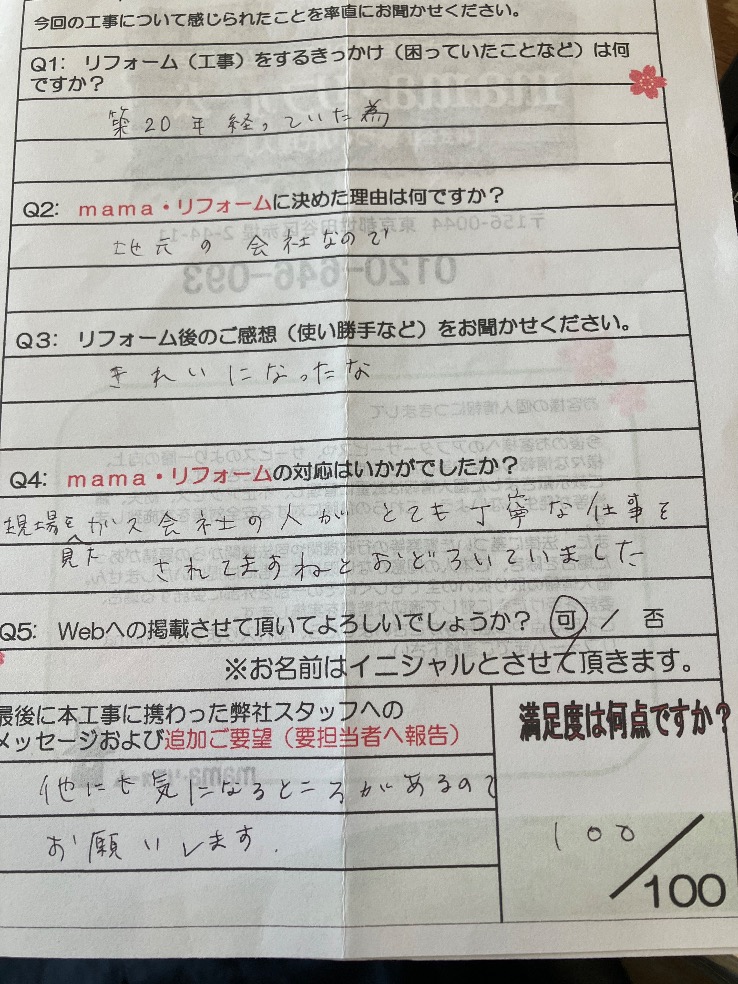 今回の工事について感じられたことを率直にお聞かせください。
Q1: リフォーム（工事）をするきっかけ（困っていたことなど）は何
ですか？
築20年経っていた為
Q2: ｍａｍａ・リフォームに決めた理由は何ですか？
地元の会社なので
Q3: リフォーム後のご感想（使い勝手など）をお聞かせください。
きれいになったな
Q4: ｍａｍａ・リフォームの対応はいかがでしたか？
現場をガス会社の人がとても丁寧な仕事を
見た
されてますねとおどろいていました
Q5: Webへの掲載させて頂いてよろしいでしょうか？ 可 / 否
※お名前はイニシャルとさせて頂きます。
最後に本工事に携わった弊社スタッフへの
メッセージおよび追加ご要望（要担当者へ報告）
他にも気になるところがあるので
お願いします.
満足度は何点ですか？
100
/100
〒156-0044 東京都世田谷区赤堤 2-44-11
0120-646-093
お客様の個人情報につきまして